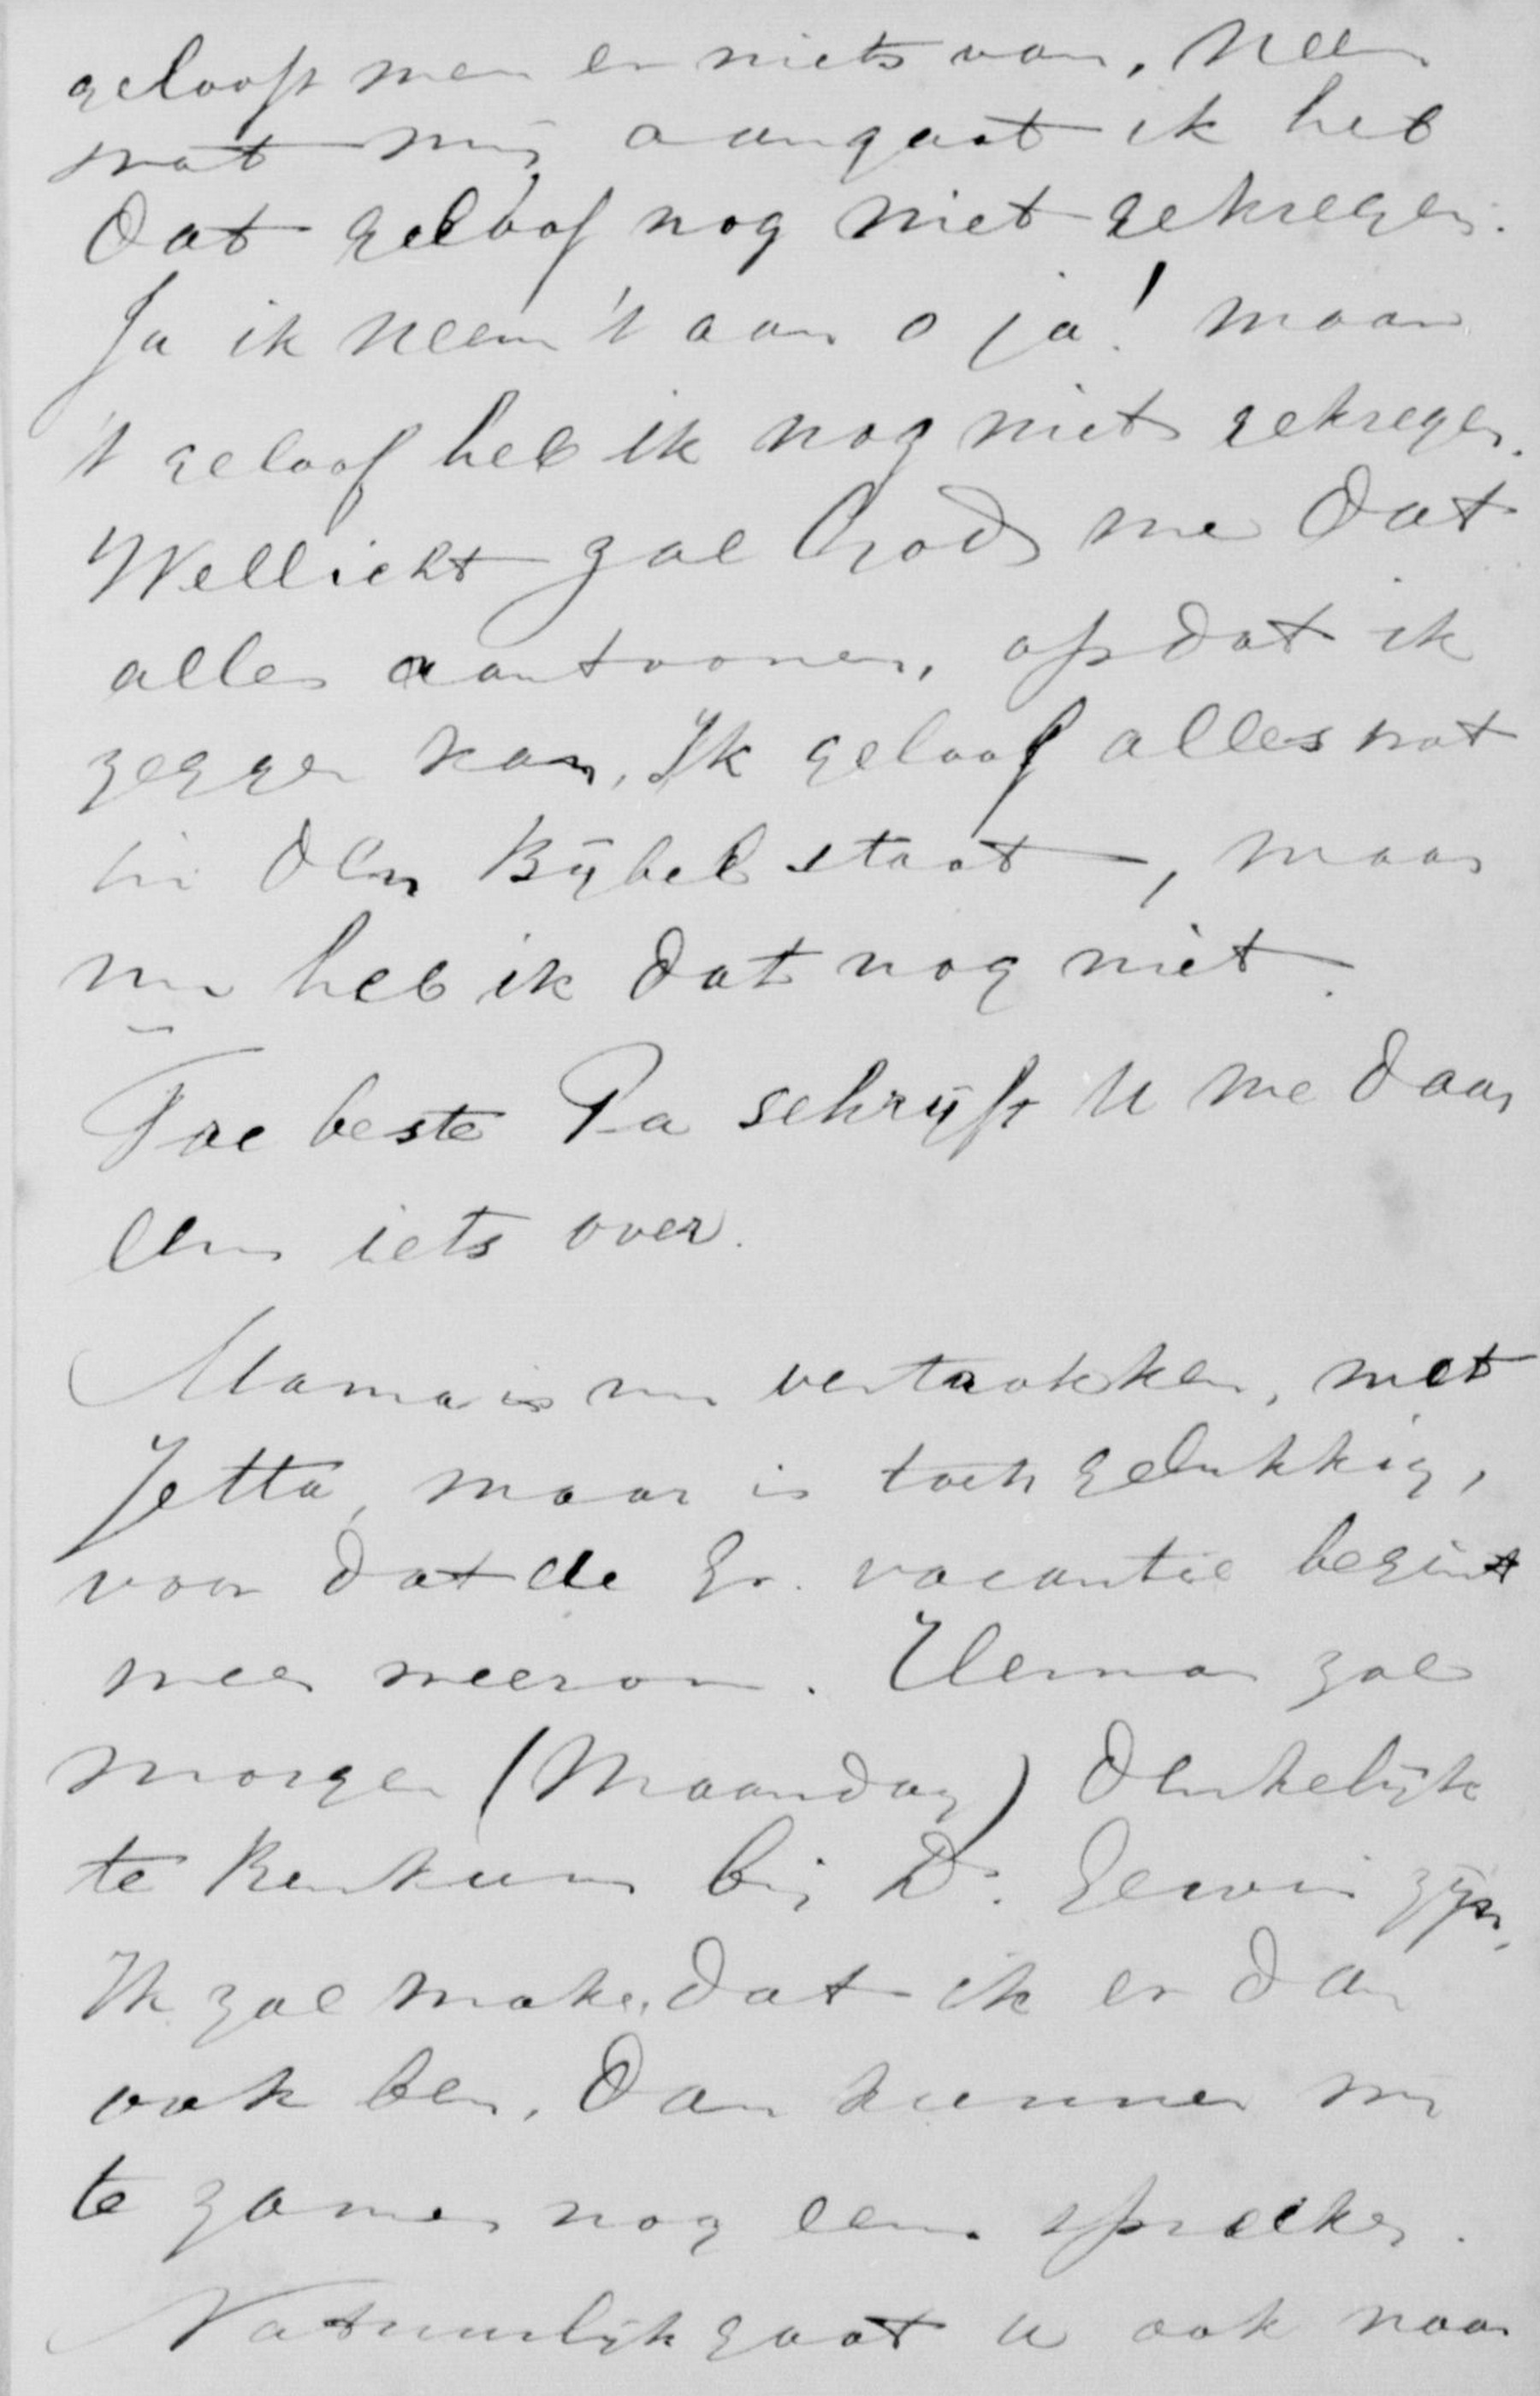 gelooft men er niets van, neen
wat mij aangaat ik heb
dat geloof nog niet gekregen.
Ja ik neem 't aan o ja! maar
't geloof heb ik nog niet gekregen.
Wellicht zal God me dat
alles aantoonen, opdat ik
zeggen kan, Ik geloof alles wat
in den Bijbel staat, maar
nu heb ik dat nog niet.
Toe beste Pa schrijft U me daar
eens iets over.
Mama is nu vertrokken, met
Jetta, maar is toch gelukkig,
voor dat de Gr. vacantie begint
weer weerom. Herman zal
morgen (Maandag) denkelijk
te Renkum bij Ds. zijn.
Ik zal maken dat ik er dan
ook ben. Dan kunnen wij
te zamen nog eens spreken.
Natuurlijk gaat u ook naar